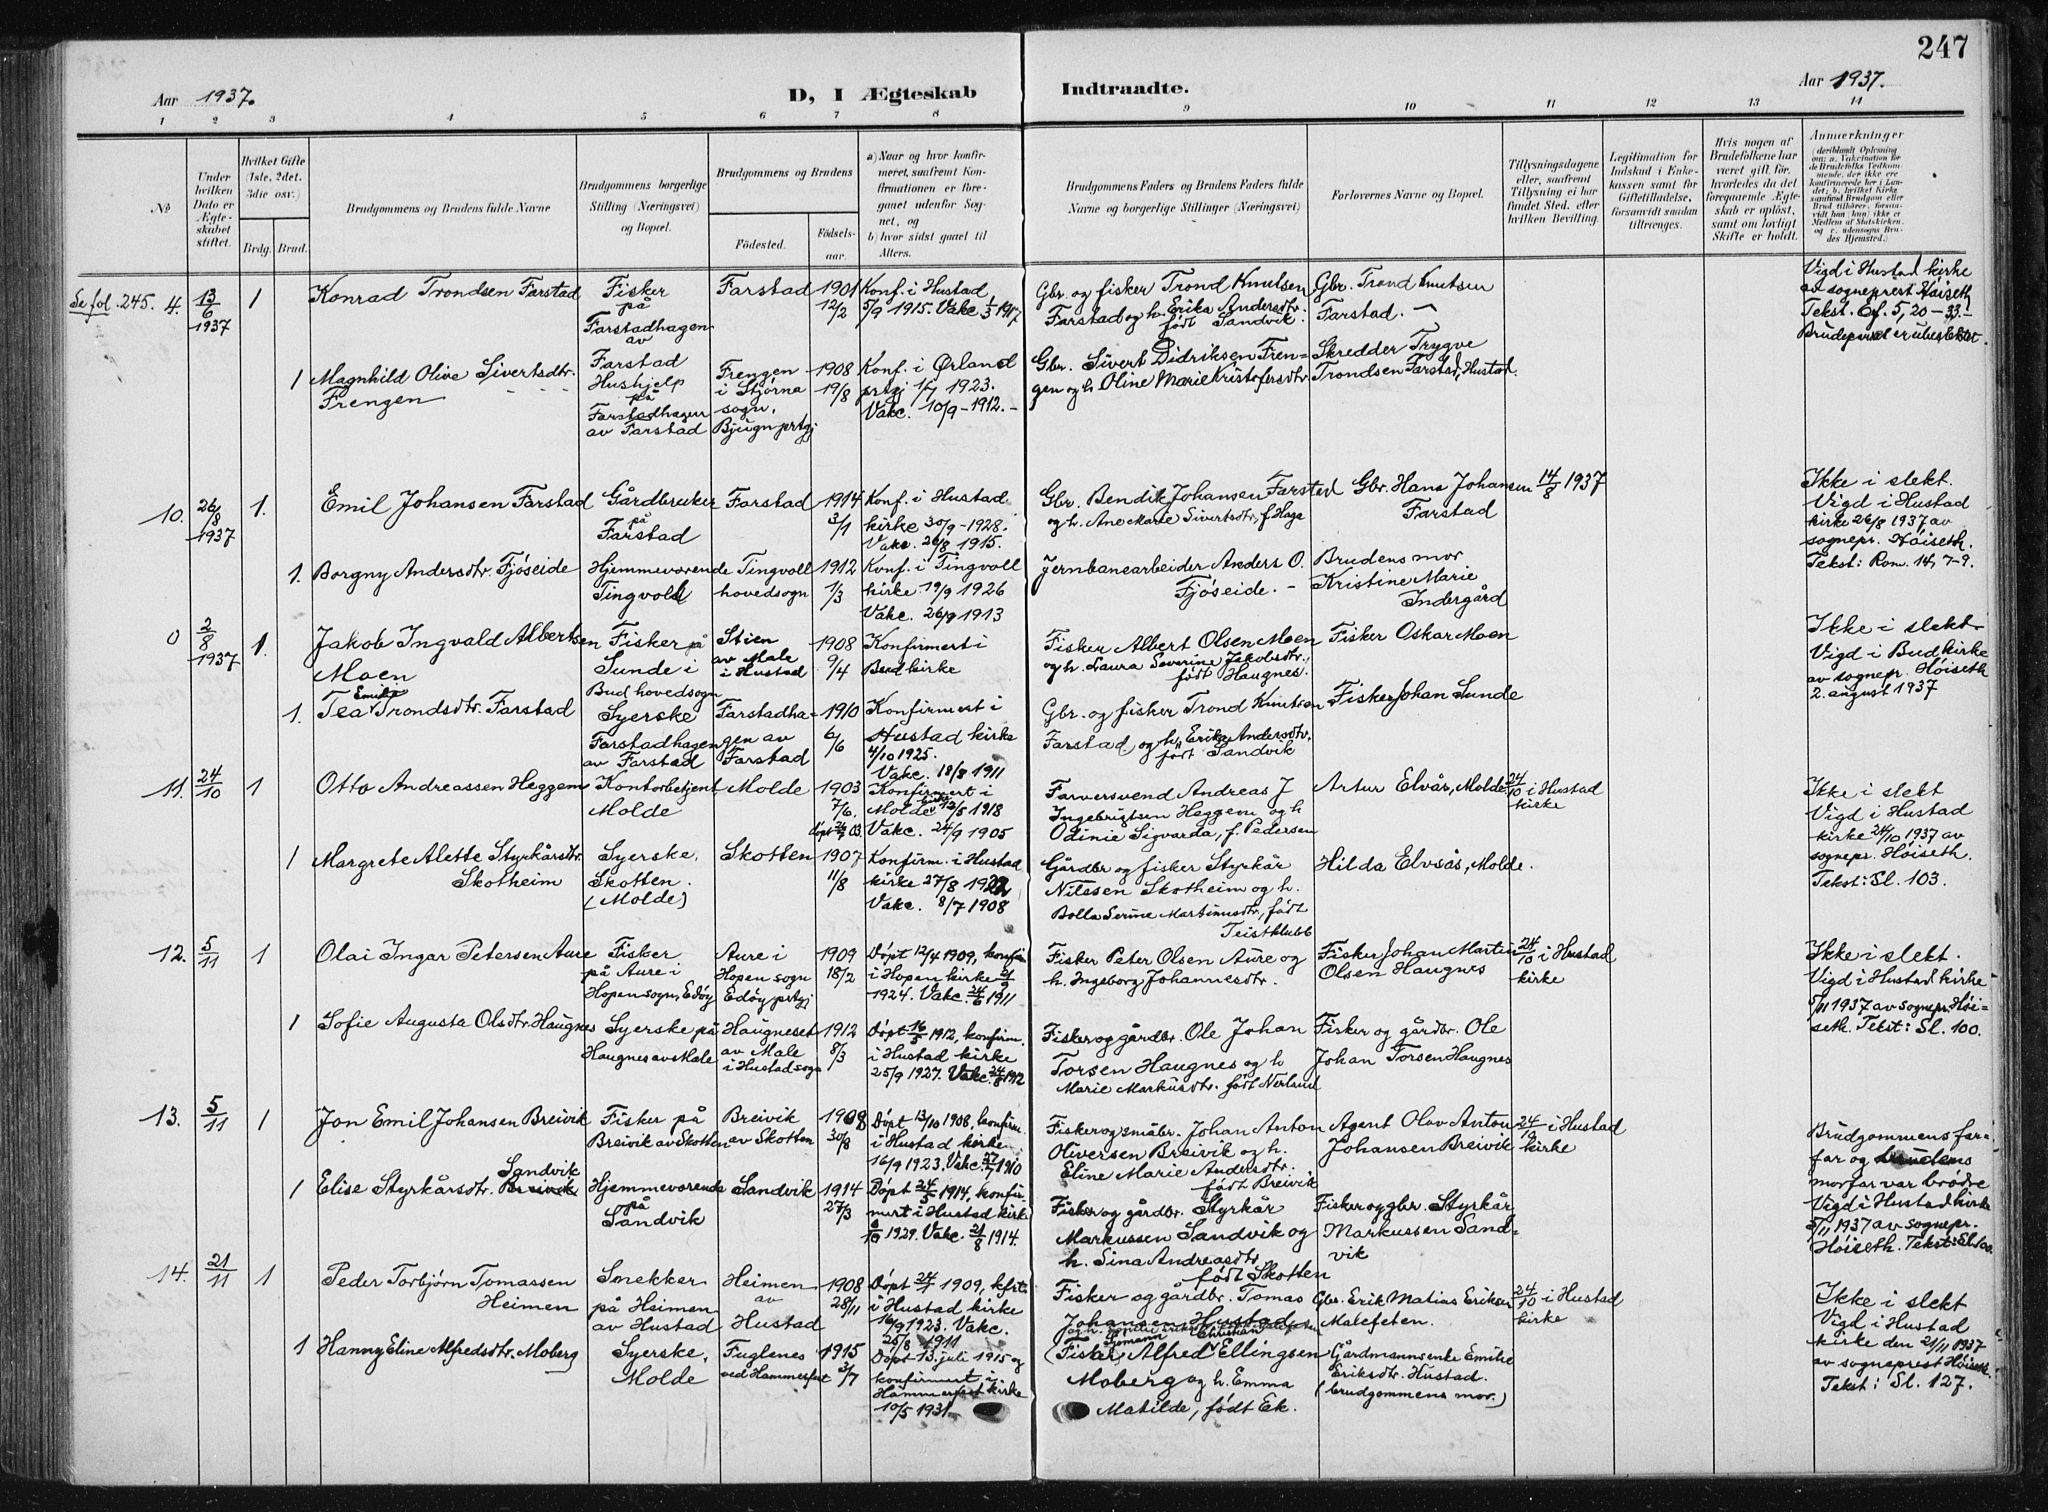 247
Aar 1937.
D, I Ægteskab Indtraadte.
Aar 1937.
1 2 3 4 5 6 7 8 9 10 11 12 13 14
No
Under hvilken Dato er Ægteskabet stiftet.
Hvilket Gifte (1ste, 2det, 3die osv.)
Brdg. Brud.
Brudgommens og Brudens fulde Navne
Brudgommens borgerlige Stilling (Næringsvei) og Bopæl.
Brudgommens og Brudens
Fødested. Fødselsaar.
a) Naar og hvor konfirmeret, saafremt Konfirmationen er foregaaet udenfor Sognet, og
b) hvor sidst gaaet til Alters.
Brudgommens Faders og Brudens Faders fulde Navne og borgerlige Stillinger (Næringsvei)
Forlovernes Navne og Bopæl.
Tillysningsdagene eller, saafremt Tillysning ei har fundet Sted, efter hvilken Bevilling.
Legitimation for Indskud i Enkekassen samt for Giftetilladelse, forsaavidt saadan tiltrænges.
Hvis nogen af Brudefolkene har været gift før, hvorledes da det foregaaende Ægteskab er opløst, samt om lovligt Skifte er holdt.
Anmærkninger (deriblandt Oplysning om: a. Vakcination for de Brudefolks Vedkommende, der ikke ere konfirmerede her i Landet; b. hvilket Kirkesamfund Brudgom eller Brud tilhører, forsaavidt han (hun) ikke er Medlem af Statskirken, og c. udensogns Brudes Hjemsted.)
Se fol. 245. 4. 13/6 1937 1
Konrad Trondsen Farstad
Fisker
på
Farstadhagen
av
Farstad
Farstad
1901
12/2
Konf. i Hustad
5/9 1915. Vakc. 1/3 1917
Gbr. og fisker Trond Knutsen
Farstad og h. Erika Andersdtr.
født Sandvik.
Gbr. Trond Knutsen
Farstad. –
Vigd i Hustad kirke
av sogneprest Høiseth
Tekst. Ef. 5, 20–33.–
Brudeparet er ubeslektet
1 Magnhild Olive Sivertsdtr.
Frengen
Hushjelp
på
Farstadhagen
av Farstad
Frengen
i Stjørna
sogn,
Bjugn prtgj
1908
19/8
Konf. i Ørland
prtgj 1/7 1923.
Vakc. 10/9–1912.–
Gbr. Sivert Didriksen Frengen
og h. Oline Marie Kristofersdtr.
Skredder Trygve
Trondsen Farstad, Hustad.
10. 26/8 1937 1.
Emil Johansen Farstad
Gårdbruker
på
Farstad
Farstad
1914
3/1
Konf. i Hustad
kirke 30/9–1928.
Vakc. 26/8 1915.
Gbr. Bendik Johansen Farstad
og h. Ane Marie Sivertsdtr, f. Hage
Gbr. Hans Johansen
Farstad
14/8 1937
Ikke i slekt.
Vigd i Hustad
kirke 26/8 1937 av
sognepr. Høiseth.
Tekst: Rom. 14, 7–9.
1. Borgny Andersdtr. Fjøseide
Hjemmeværende
Tingvoll
Tingvoll
hovedsogn
1912
1/3
Konf. i Tingvoll
kirke 19/9 1926
Vakc. 26/9 1913
Jernbanearbeider Anders O.
Fjøseide. –
Brudens mor
Kristine Marie
Indergård
0 2/8 1937 1.
Jakob Ingvald Albertsen
Moen
Fisker på
Sunde i
Bud hovedsogn
Stien
av Male
i Hustad
1908
9/4
Konfirmert i
Bud kirke
Fisker Albert Olsen Moen
og h. Laura Severine Jakobsdtr.,
født Haugnes.
Fisker Oskar Moen
Ikke i slekt
Vigd i Bud kirke
av sognepr. Høiseth
2. august 1937
1. Tea Emilie Trondsdtr. Farstad
Syerske
Farstadhagen
av Farstad
Farstadhagen
av
Farstad
1910
6/6
Konfirmert i
Hustad kirke
4/10 1925.
Vakc. 18/8 1911
Gbr. og fisker Trond Knutsen
Farstad, og h. Erika Andersdtr,
født Sandvik
Fisker Johan Sunde
11. 24/10 1
Otto Andreassen Heggem
Kontorbetjent,
Molde
Molde
1903
7/6.
Konfirmert i
Molde 12/5 1918
Vakc. 24/9 1905
Farversvend Andreas J
Ingebrigtsen Heggem og h
Odinie Sigvarda, f. Pedersen
Artur Elvsås, Molde
24/10 i Hustad
kirke
Ikke i slekt
Vigd i Hustad
kirke 24/10 1937 av
sognepr. Høiseth.
Tekst: Sl. 103.
1 Margrete Alette Styrkårsdtr.
Skotheim
Syerske,
Skotten.
(Molde)
Skotten
1907
11/8
Konfirm. i Hustad
kirke 27/8 1922
Vakc. 8/7 1908
Gårdbr og fisker Styrkår
Nilssen Skotheim og h.
Bolla Serine Martinusdtr., født
Teistklubb
Hilda Elvsås, Molde.
12. 5/11 1
Olai Ingar Petersen Aure
Fisker
på Aure i
Hopen sogn, Edøy
Aure i
Hopen sogn
Edøy prtgj
1909
18/2
Døpt 12/4 1909, konfir.
i Hopen kirke 21/9
1924. Vakc. 24/6 1911
Fisker Peter Olsen Aure og
h. Ingeborg Johannesdtr.
Fisker Johan Martin
Olsen Haugnes
24/10 i Hustad
kirke
Ikke i slekt.
Vigd i Hustad kirke
5/11 1937 av sognepr. Høiseth.
Tekst: Sl. 100.
1 Sofie Augusta Olsdtr. Haugnes
Syerske på
Haugnes av Male
Haugneset
av Male
i Hustad sogn
1912
8/3
Døpt 16/5 1912, konfirm.
i Hustad kirke
25/9 1927. Vakc. 24/8 1912
Fisker og gårdbr. Ole Johan
Torsen Haugnes og h
Marie Markusdtr. født Nerland
Fisker og gårdbr. Ole
Johan Torsen Haugnes
13. 5/11 1
Jon Emil Johansen Breivik
Fisker på
Breivik av Skotten
Breivik
av Skotten
1908
30/8
Døpt 13/10 1908, konfirm.
i Hustad kirke
16/9 1923. Vakc. 27/7 1910
Fisker og småbr. Johan Anton
Oliversen Breivik og h.
Eline Marie Andersdtr.
født Breivik
Agent Olav Anton
Johansen Breivik
24/10 i Hustad
kirke
Brudgommens farfar
og brudens
morfar var brødre
Vigd i Hustad kirke
5/11 1937 av sognepr.
Høiseth. Tekst: Sl.
1 Elise Styrkårsdtr. Sandvik
Hjemmeværende
på
Sandvik
Sandvik
1914
27/3
Døpt 24/5 1914, konfirmert
i Hustad kirke
1929. Vakc. 21/8 1914.
Fisker og gårdbr. Styrkår
Markussen Sandvik og
h. Sina Andreasdtr.
født Skotten
Fisker og gbr. Styrkår
Markussen Sandvik
14. 21/11 1
Peder Torbjørn Tomassen
Heimen
Snekker
på Heimen
av Hustad
Heimen
av
Hustad
1908
28/11
Døpt 24/1 1909, kfrt.
i Hustad kirke
16/9 1923. Vakc.
25/8 1911
Fisker og gårdbr. Tomas
Johansen Hustad
Gbr. Erik Matias Eriksen
Malefeten.
24/10 i Hustad
kirke
Ikke i slekt
Vigd i Hustad
kirke den 21/11 1937
av sogneprest Høiseth.
Tekst: Sl. 127.
1 Hanny Eline Alfredsdtr. Moberg
Syerske,
Molde
Fuglenes
ved Hammerfest
1915
3/7
Døpt 13. juli 1915 og
konfirmert i
Hammerfest kirke
10/5 1931.
Alfred Christian Ellingsen
Moberg og h. Emma
Matilde, født Ek.
Gårdmannsenke Emilie
Eriksdtr. Hustad.
(brudgommens mor.)